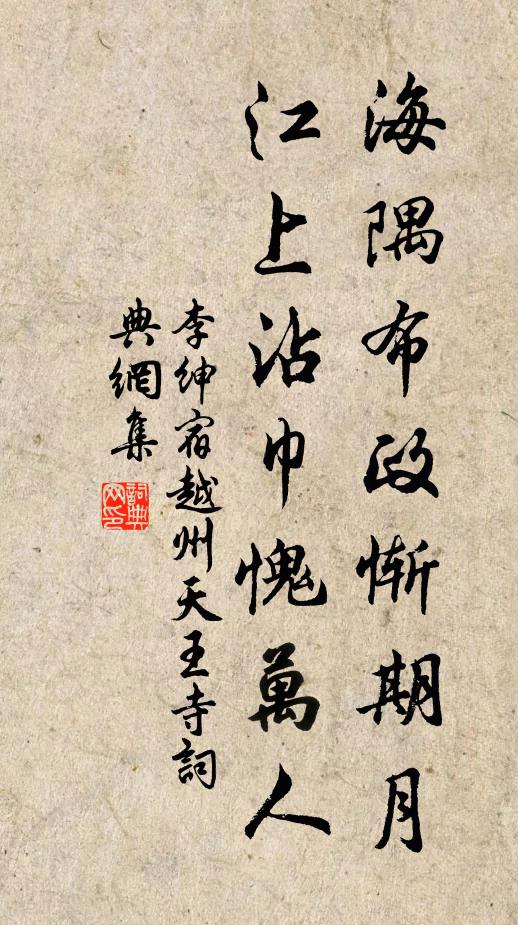 海隅布政慚期月
江上沾巾愧萬人
李紳宿越州天王寺詞
典網集
詞典
网印